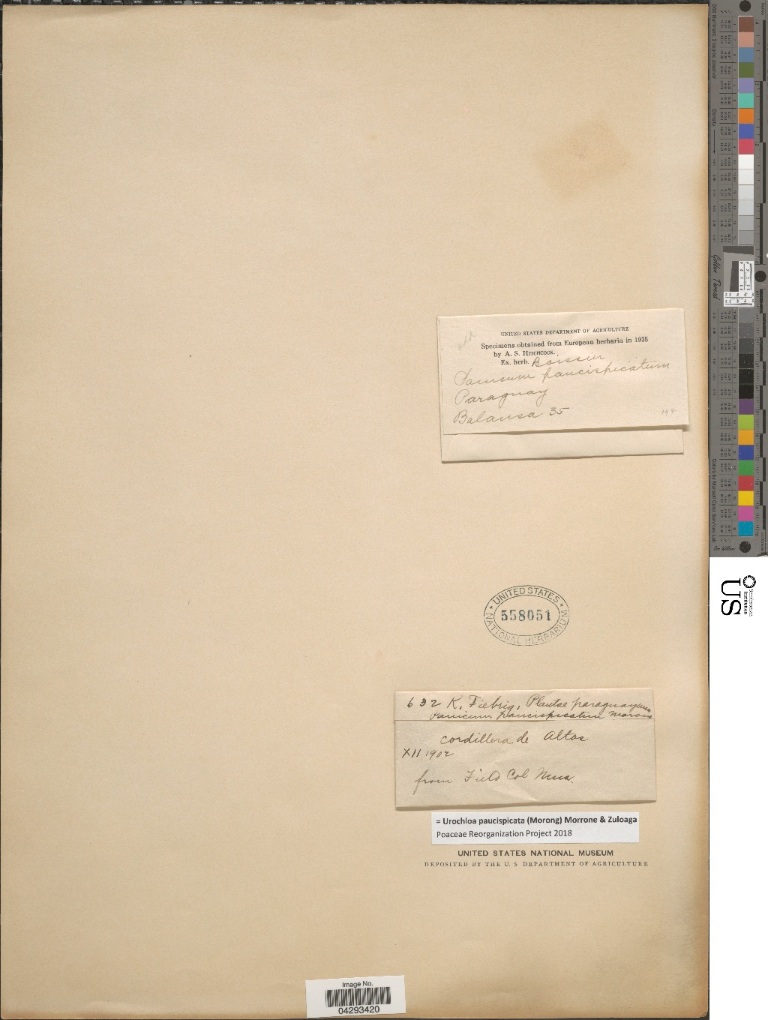 UNITED STATES DEPARTMENT OF AGRICULTURE
Specimens obtained from European herbaria in 1928
by A. S. HITCHCOCK.
Ex. herb. Boissier
Panicum paucispicatum
Paraguay
Balansa 35
UNITED STATES
558051
NATIONAL HERBARIUM
632 K. Fiebrig, Plantae paraguayenses
Panicum paucispicatum Morong
Cordillera de Altos
XII 1902
from Field Col Mus.
= Urochloa paucispicata (Morong) Morrone & Zuloaga
Poaceae Reorganization Project 2018
UNITED STATES NATIONAL MUSEUM
DEPOSITED BY THE U. S. DEPARTMENT OF AGRICULTURE
Image No.
04293420
US